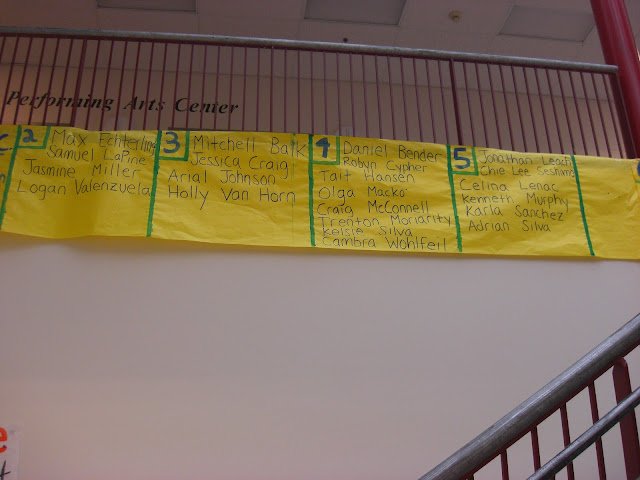 Performing Arts Center
2
Max Echterling
Samuel LaPine
Jasmine Miller
Logan Valenzuela
3
Mitchell Balk
Jessica Craig
Arial Johnson
Holly Van Horn
4
Daniel Bender
Robyn Cypher
Tait Hansen
Olga Macko
Craig McConnell
Trenton Moriarity
Kelsie Silva
Cambra Wohlfeil
5
Jonathan Leach
Chie Lee
Celina Lenac
Kenneth Murphy
Karla Sanchez
Adrian Silva